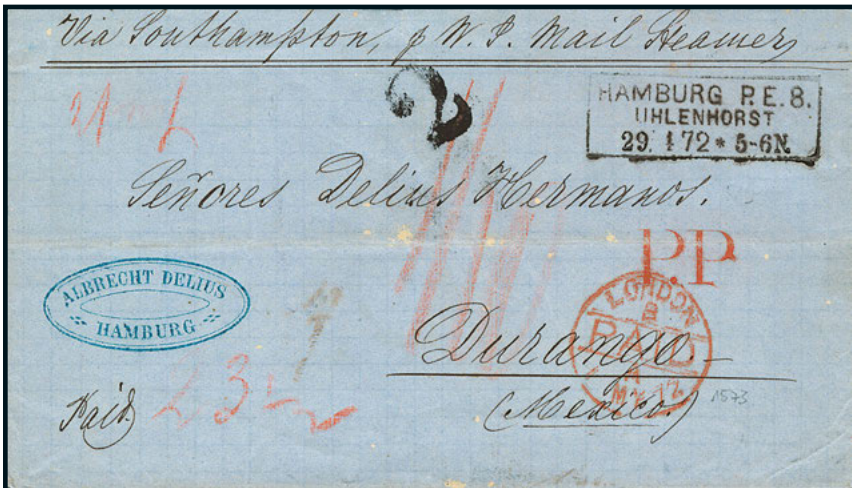 Via Southampton, p W. I. Mail Steamer
2
HAMBURG P.E. 8.
UHLENHORST
29. 4 72 * 5-6N.
Señores Delius Hermanos.
P.P.
ALBRECHT DELIUS
HAMBURG
LONDON
B
PAID
MY 72
Durango.
(Mexico.)
1573
Paid